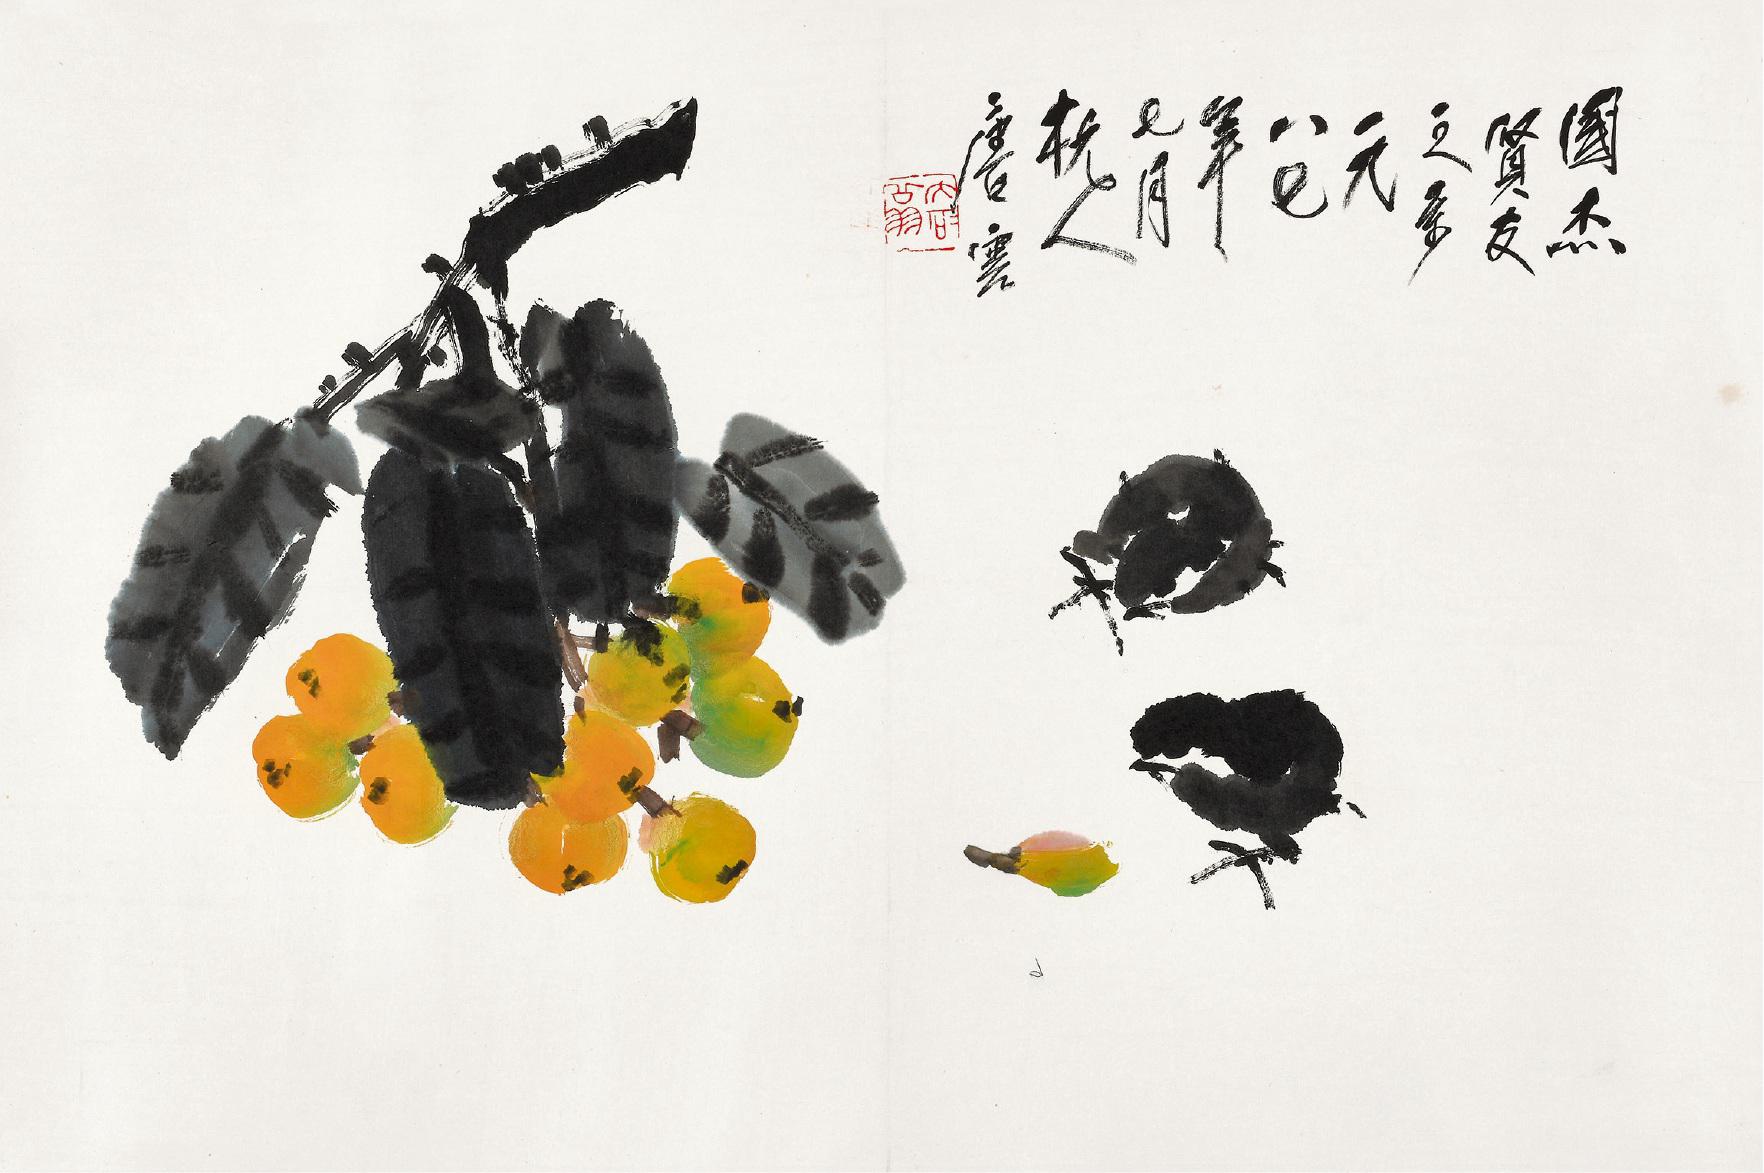 國杰
賢友
之
一九
八七
年
七月
杭人
唐雲
大石
翁